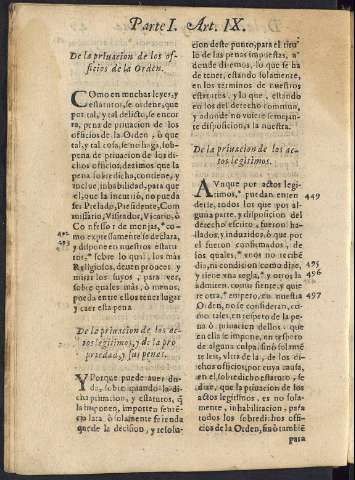 Parte I. Art. IX.
De la priuacion de los of-
ficios de la Orden.
COmo en muchas leyes, y
estatutos, se ordene, que
por tal, y tal delicto, se encor
ra, pena de priuacion de los
officios de la Orden, ò que
por tal, cosa, se no haga, sob-
pena de priuacion de los di-
chos officios, dezimos que la
pena sobredicha, contiene, y
incluye, inhabilidad, para que
el, que la incurriò, no pueda
ser Prelado, Presidente, Com
missario, Visitador, Vicario, ò
Confessor de monjas, * co-
492 mo expressamente se declara,
493 y dispone en nuestros estatu-
tos, * sobre lo qual, los mas
Religiosos, deuen proceer, y
mirar los suyos, para ver,
sobre quales más, ò menos,
pueda entre ellos tener lugar
y caer esta pena
De la priuacion de los ac-
tos legitimos, y de la pro
priedad, y sus penas.
Y Porque puede auer du-
da, sobre quando la di-
cha priuacion, y estatutos, q̃
la imponen, importen senten
cia lata, ò solamente ferenda
quede la decision, y resolu-
cion deste punto, para el titu-
lo de las penas impuestas, a-
donde diremos, lo que se ha
de tener, estando solamente,
en los terminos de nuestros
estatutos, y lo que, estando
en los del derecho commun,
y adonde no vuiere semejan-
te disposicion, a la nuestra.
De la priuacion de los ac-
tos legitimos.
AVnque por actos legi-
timos, * puedan enten 449
derse, todos los que por al-
guna parte, y disposicion del
derecho escrito, fueron ha-
llados, y induzidos, ò que por
el fueron confirmados, de
los quales, * vnos no recibē
dia, ni condicion como dize, 495
y tiene vna regla, * y otros la 496
admiten comunmente, y que
entre otra, * empero, en nuestra 497
Orden, no se consideran, co-
mo tales, en respeto de la pe-
na ò priuacion dellos, que
en ella se impone, en respeto
de alguna culpa, sinò solamē
te leis, vltra de la, de los di-
chos officios, por cuya causa,
en el sobredicho estatuto, se
dize, que la priuacion de los
actos legitimos, es no sola-
mente, inhabilitacion, para
todos los sobredichos offi-
cios de la Orden, sinò tambiē
para